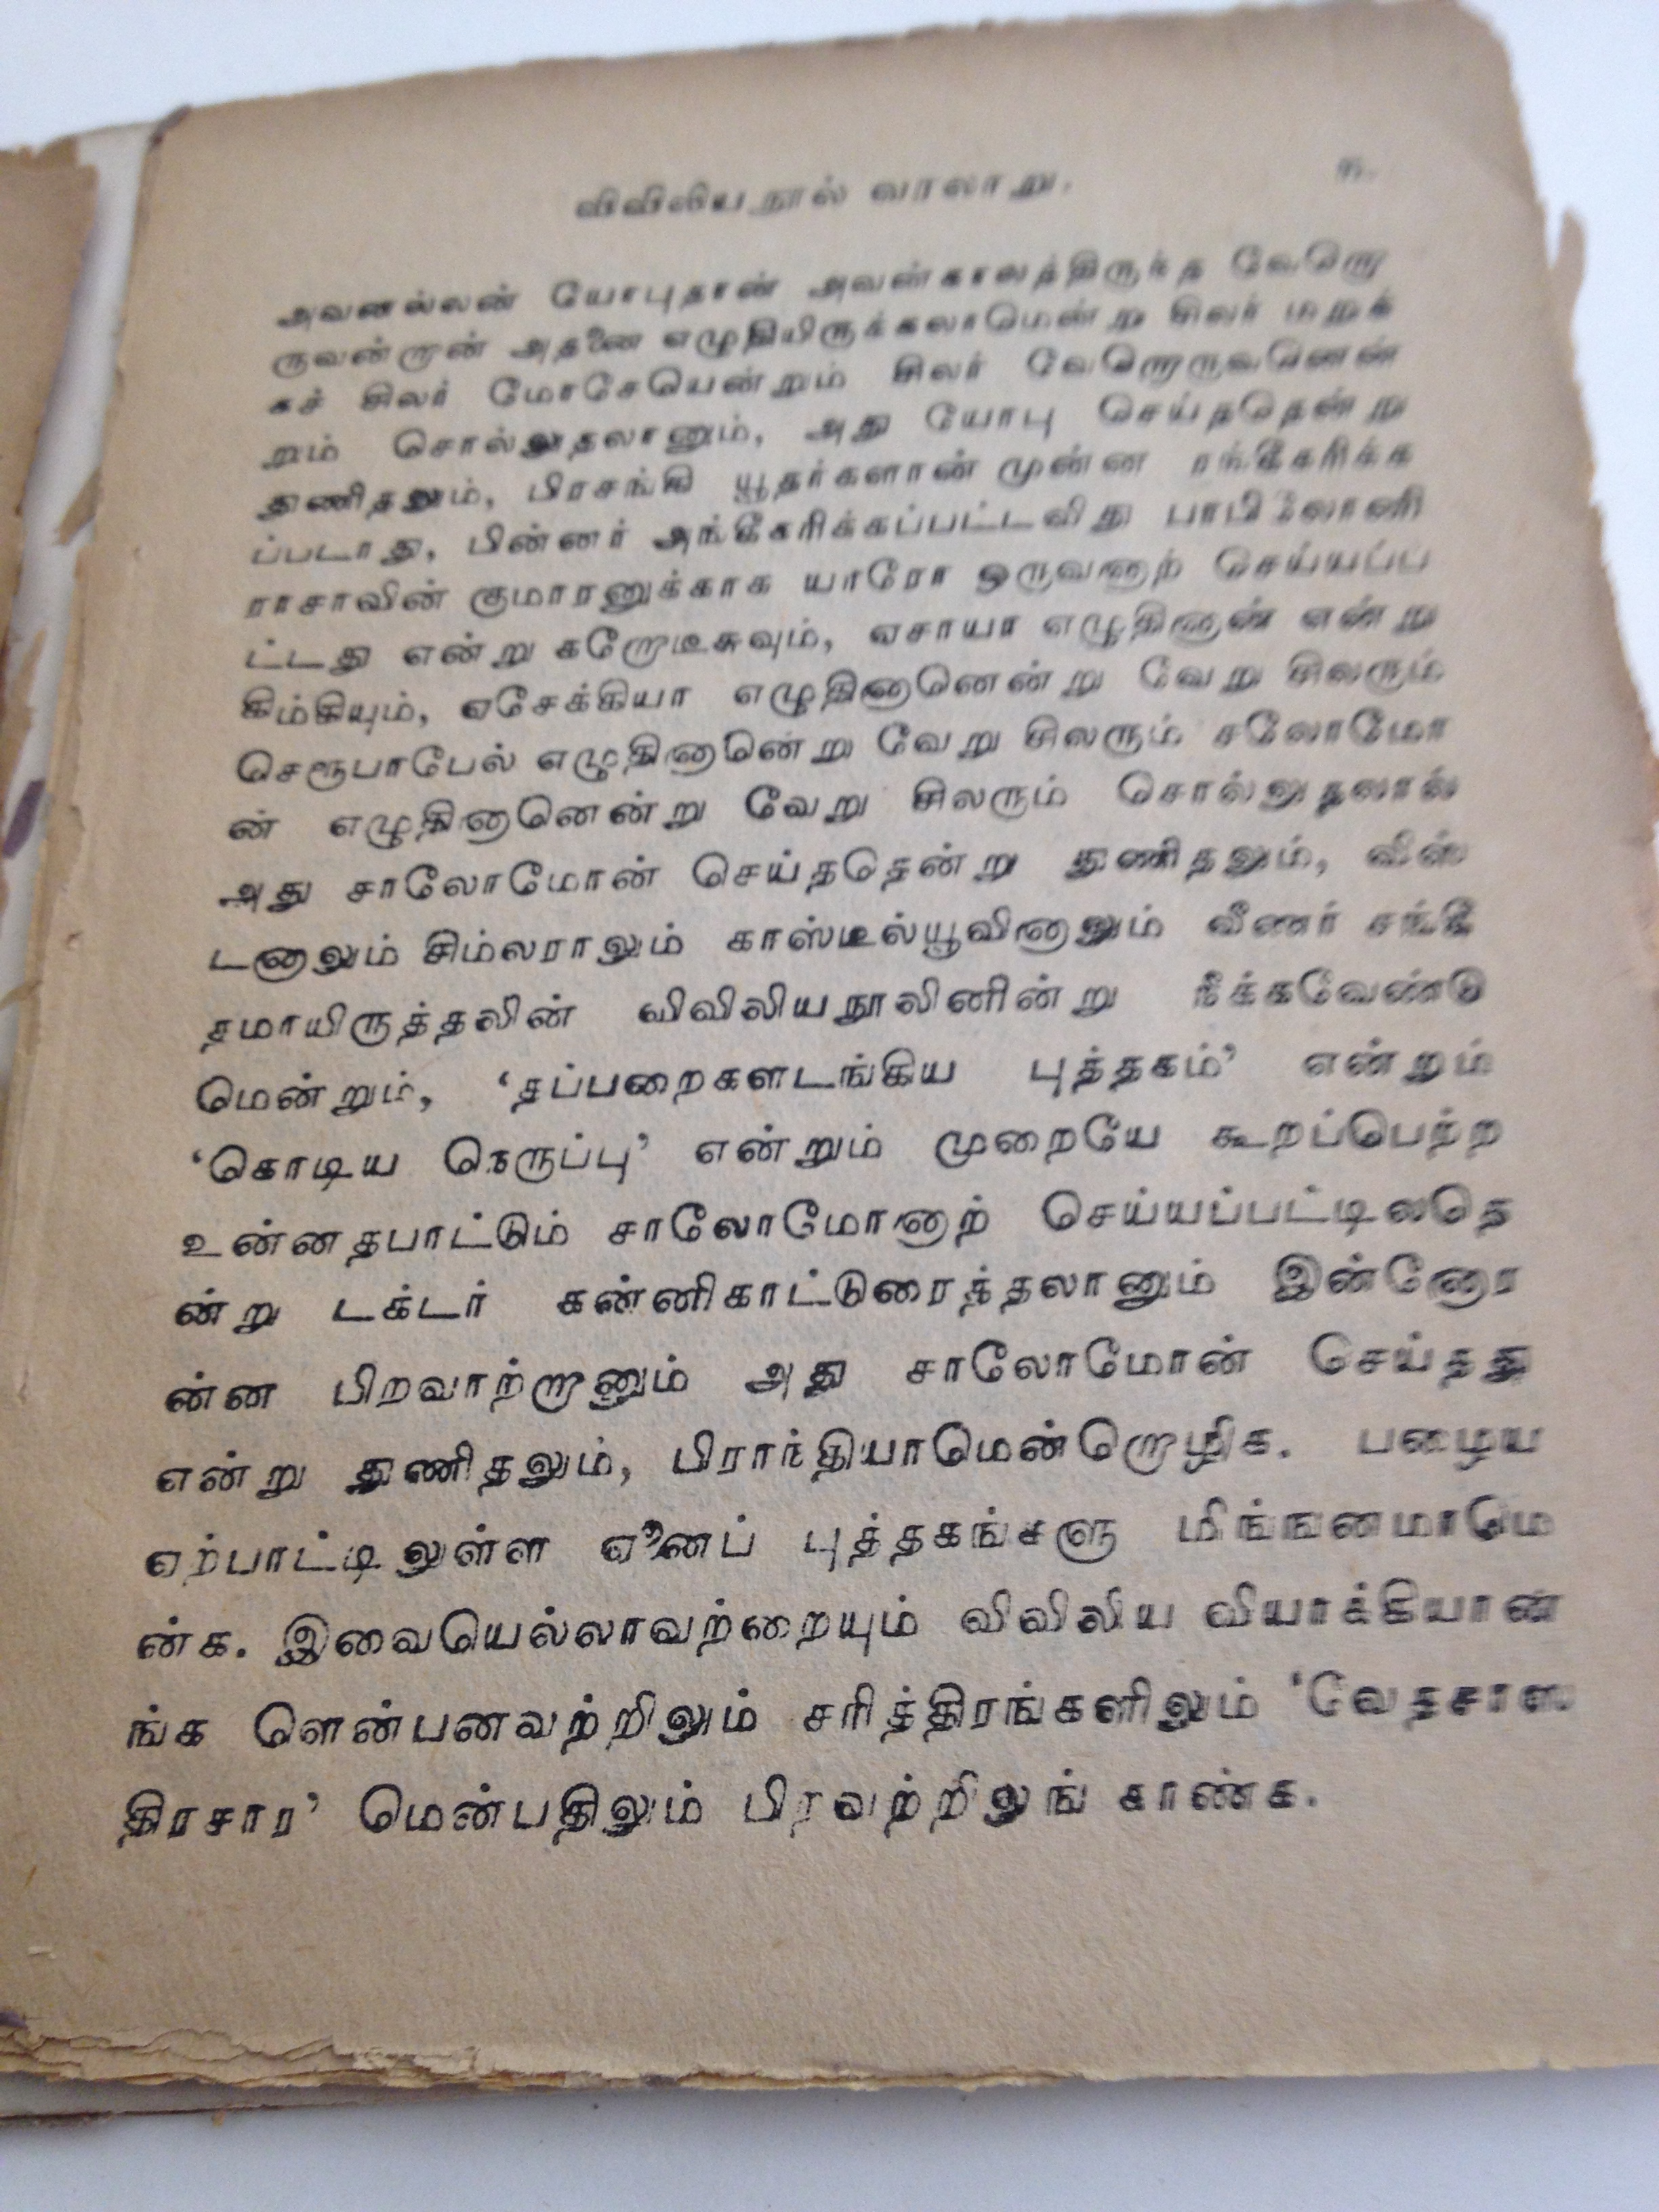 விவிலியநூல் வரலாறு.
அவனல்லன் யோபுதான் அவன்காலத்திருந்த வேறொ
ருவன்றான் அதனை எழுதியிருக்கலாமென்று சிலர் மறுக்
கச் சிலர் மோசேயென்றும் சிலர் வேறொருவனென்
றும் சொல்லுதலானும், அது யோபு செய்ததென்று
துணிதலும், பிரசங்கி யூதர்களான் முன்ன ரங்கீகரிக்க
ப்படாது, பின்னர் அங்கீகரிக்கப்பட்டவிது பாபிலோனி
ராசாவின் குமாரனுக்காக யாரோ ஒருவனாற் செய்யப்ப
ட்டது என்று கறோடீசுவும், ஏசாயா எழுதினான் என்று
கிம்கியும், ஏசேக்கியா எழுதினானென்று வேறு சிலரும்
செரூபாபேல் எழுதினானென்று வேறு சிலரும் சலோமோ
ன் எழுதினானென்று வேறு சிலரும் சொல்லுதலால்
அது சாலோமோன் செய்ததென்று துணிதலும், விஸ்
டனாலும் சிம்லராலும் காஸ்டீல்யூவினாலும் வீணர் சங்கீ
தமாயிருத்தலின் விவிலியநூலினின்று நீக்கவேண்டு
மென்றும், ‘தப்பறைகளடங்கிய புத்தகம்’ என்றும்
‘கொடிய நெருப்பு’ என்றும் முறையே கூறப்பெற்ற
உன்னதபாட்டும் சாலோமோனாற் செய்யப்பட்டிலதெ
ன்று டக்டர் கன்னிகாட்டுரைத்தலானும் இன்னோர
ன்ன பிறவாற்றானும் அது சாலோமோன் செய்தது
என்று துணிதலும், பிராந்தியாமென்றொழிக. பழைய
ஏற்பாட்டிலுள்ள ஏனைப் புத்தகங்களு மிங்ஙனமாமெ
ன்க. இவையெல்லாவற்றையும் விவிலிய வியாக்கியான
ங்க ளென்பனவற்றிலும் சரித்திரங்களிலும் ‘வேதசாஸ
திரசார’ மென்பதிலும் பிரவற்றிலுங் காண்க.